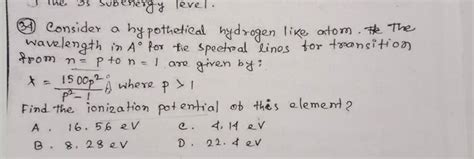 the 3s subenergy level.
31) Consider a hypothetical hydrogen like atom. The
wavelength in A° for the spectral lines for transition
from n = p to n = 1 are given by:
x = 1500p² / p² - 1 , where p > 1
Find the ionization potential ob this element?
A. 16.56 eV C. 4.14 eV
B. 8.28 eV D. 22.4 eV